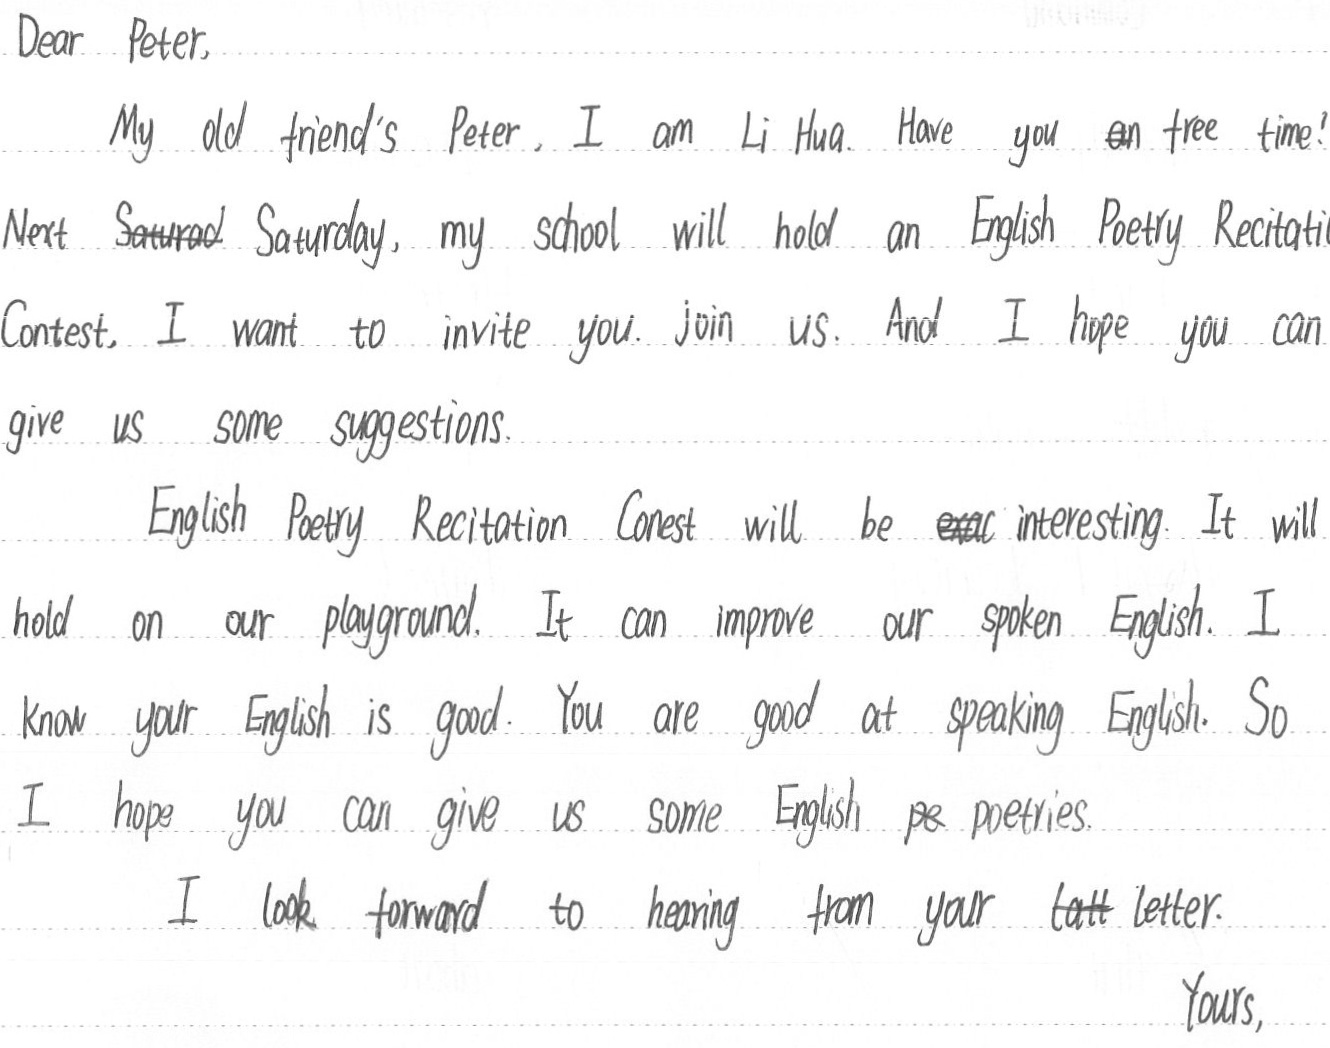 Dear Peter,
My old friend's Peter, I am Li Hua. Have you free time!
Next Saturday, my school will hold an English Poetry Recitati
Contest. I want to invite you. join us. And I hope you can
give us some suggestions.
English Poetry Recitation Conest will be interesting. It will
hold on our playground. It can improve our spoken English. I
know your English is good. You are good at speaking English. So
I hope you can give us some English poetries.
I look forward to hearing from your letter.
Yours,